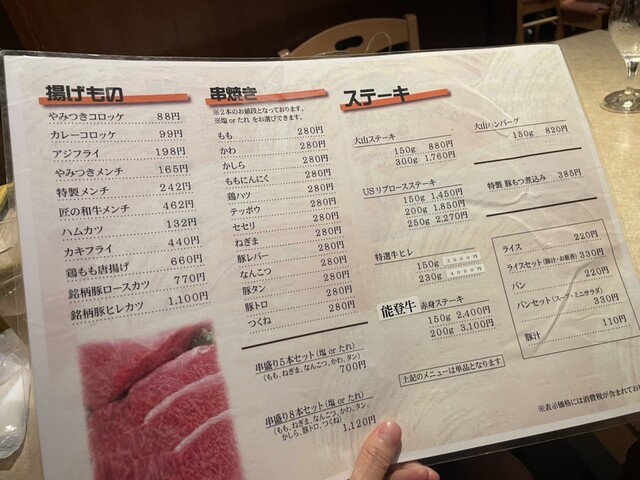 揚げもの
やみつきコロッケ 88円
カレーコロッケ 99円
アジフライ 198円
やみつきメンチ 165円
特製メンチ 242円
匠の和牛メンチ 462円
ハムカツ 132円
カキフライ 440円
鶏もも唐揚げ 660円
銘柄豚ロースカツ 770円
銘柄豚ヒレカツ 1,100円
串焼き
※2本のお値段となっております。
※塩 or たれ をお選びできます。
もも 280円
かわ 280円
かしら 280円
ももにんにく 280円
鶏ハツ 280円
テッポウ 280円
セセリ 280円
ねぎま 280円
豚レバー 280円
なんこつ 280円
豚タン 280円
豚トロ 280円
つくね 280円
串盛り5本セット(塩 or たれ)
(もも、ねぎま、なんこつ、かわ、タン)
700円
串盛り8本セット(塩 or たれ)
(もも、ねぎま、なんこつ、かわ、タン、
かしら、豚トロ、つくね) 1,120円
ステーキ
大山ステーキ
150g 880円
300g 1,760円
USリブロースステーキ
150g 1,450円
200g 1,850円
250g 2,270円
特選牛ヒレ
150g
230g
能登牛 赤身ステーキ
150g 2,400円
200g 3,100円
上記のメニューは単品となります
大山ハンバーグ
150g 820円
特製 豚もつ煮込み 385円
ライス 220円
ライスセット(豚汁・お新香) 330円
パン 220円
パンセット(スープ・ミニサラダ) 330円
豚汁 110円
※表示価格には消費税が含まれてお